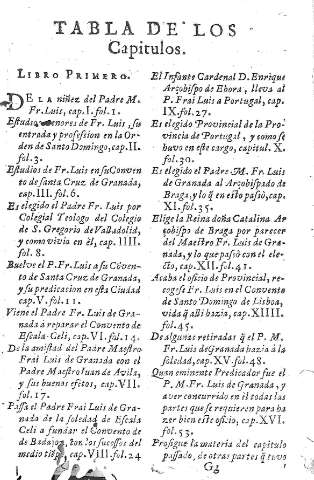 TABLA DE LOS
Capitulos.
LIBRO PRIMERO.
DE LA niñez del Padre M.
Fr. Luis, cap. I. fol. 1.
Estudios menores de Fr. Luis, su
entrada y profession en la Or
den de Santo Domingo, cap. II.
fol. 3.
Estudios de Fr. Luis en su Conven
to de santa Cruz de Granada,
cap. III. fol. 6.
Es elegido el Padre Fr. Luis por
Colegial Teologo del Colegio
de S. Gregorio de Valladolid, y
como vivia en èl, cap. IIII.
fol. 8.
Buelve el P. Fr. Luis a su Cōven
to de Santa Cruz de Granada,
y su predicacion en esta Ciudad
cap. V. fol. 11.
Viene el Padre Fr. Luis de Gra-
nada à reparar el Convento de
Escala-Celi, cap. VI. fol. 14.
De la amistad del Padre Maestro
Frai Luis de Granada con el
Padre Maestro Iuan de Avila,
y sus buenos efetos, cap. VII.
fol. 17.
Passa el Padre Frai Luis de Gra-
nada de la soledad de Escala
Celi a fundar el Convento de
de Badajoz, con los sucessos del
medio tiēpo, cap. VIII. fol. 24
El Infante Cardenal D. Enrique
Arçobispo de Ebora, lleva al
P. Frai Luis a Portugal, cap.
IX. fol. 27.
Es elegido Provincial de la Pro-
vincia de Portugal, y como se
huvo en este cargo, capitul. X.
fol. 30.
Es elegido el Padre M. Fr. Luis
de Granada al Arçobispado de
Braga, y lo q̃ en esto passò, cap.
XI. fol. 35.
Elige la Reina doña Catalina Ar
çobispo de Braga por parecer
del Maestro Fr. Luis de Gra-
nada, y lo que passò con el ele-
cto, cap. XII. fol. 41.
Acaba el oficio de Provincial, re-
cogese Fr. Luis en el Convento
de Santo Domingo de Lisboa,
vida q̃ alli hazia, cap. XIIII.
fol. 45.
De algunas retiradas q̃ el P. M.
Fr. Luis de Granada hazia à la
soledad, cap. XV. fol. 48.
Quan eminente Predicador fue el
P. M. Fr. Luis de Granada, y
aver concurrido en èl todas las
partes que se requieren para ha
zer bien este oficio, cap. XVI.
fol. 53.
Prosigue la materia del capitulo
passado, de otras partes q̃ tuvo
Gg